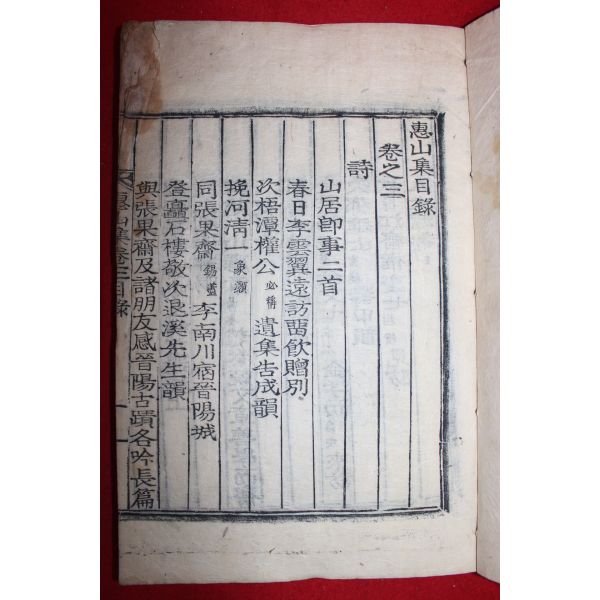 惠山集目錄
卷之三
詩
山居卽事二首
春日李雲翼遠訪留飮贈別
次梧潭權公必稱遺集告成韻
挽河淸一象灝
同張果齋錫藎李南川宿晉陽城
登矗石樓敬次退溪先生韻
與張果齋及諸朋友感晉陽古蹟各吟長篇
惠山集卷三目錄 一